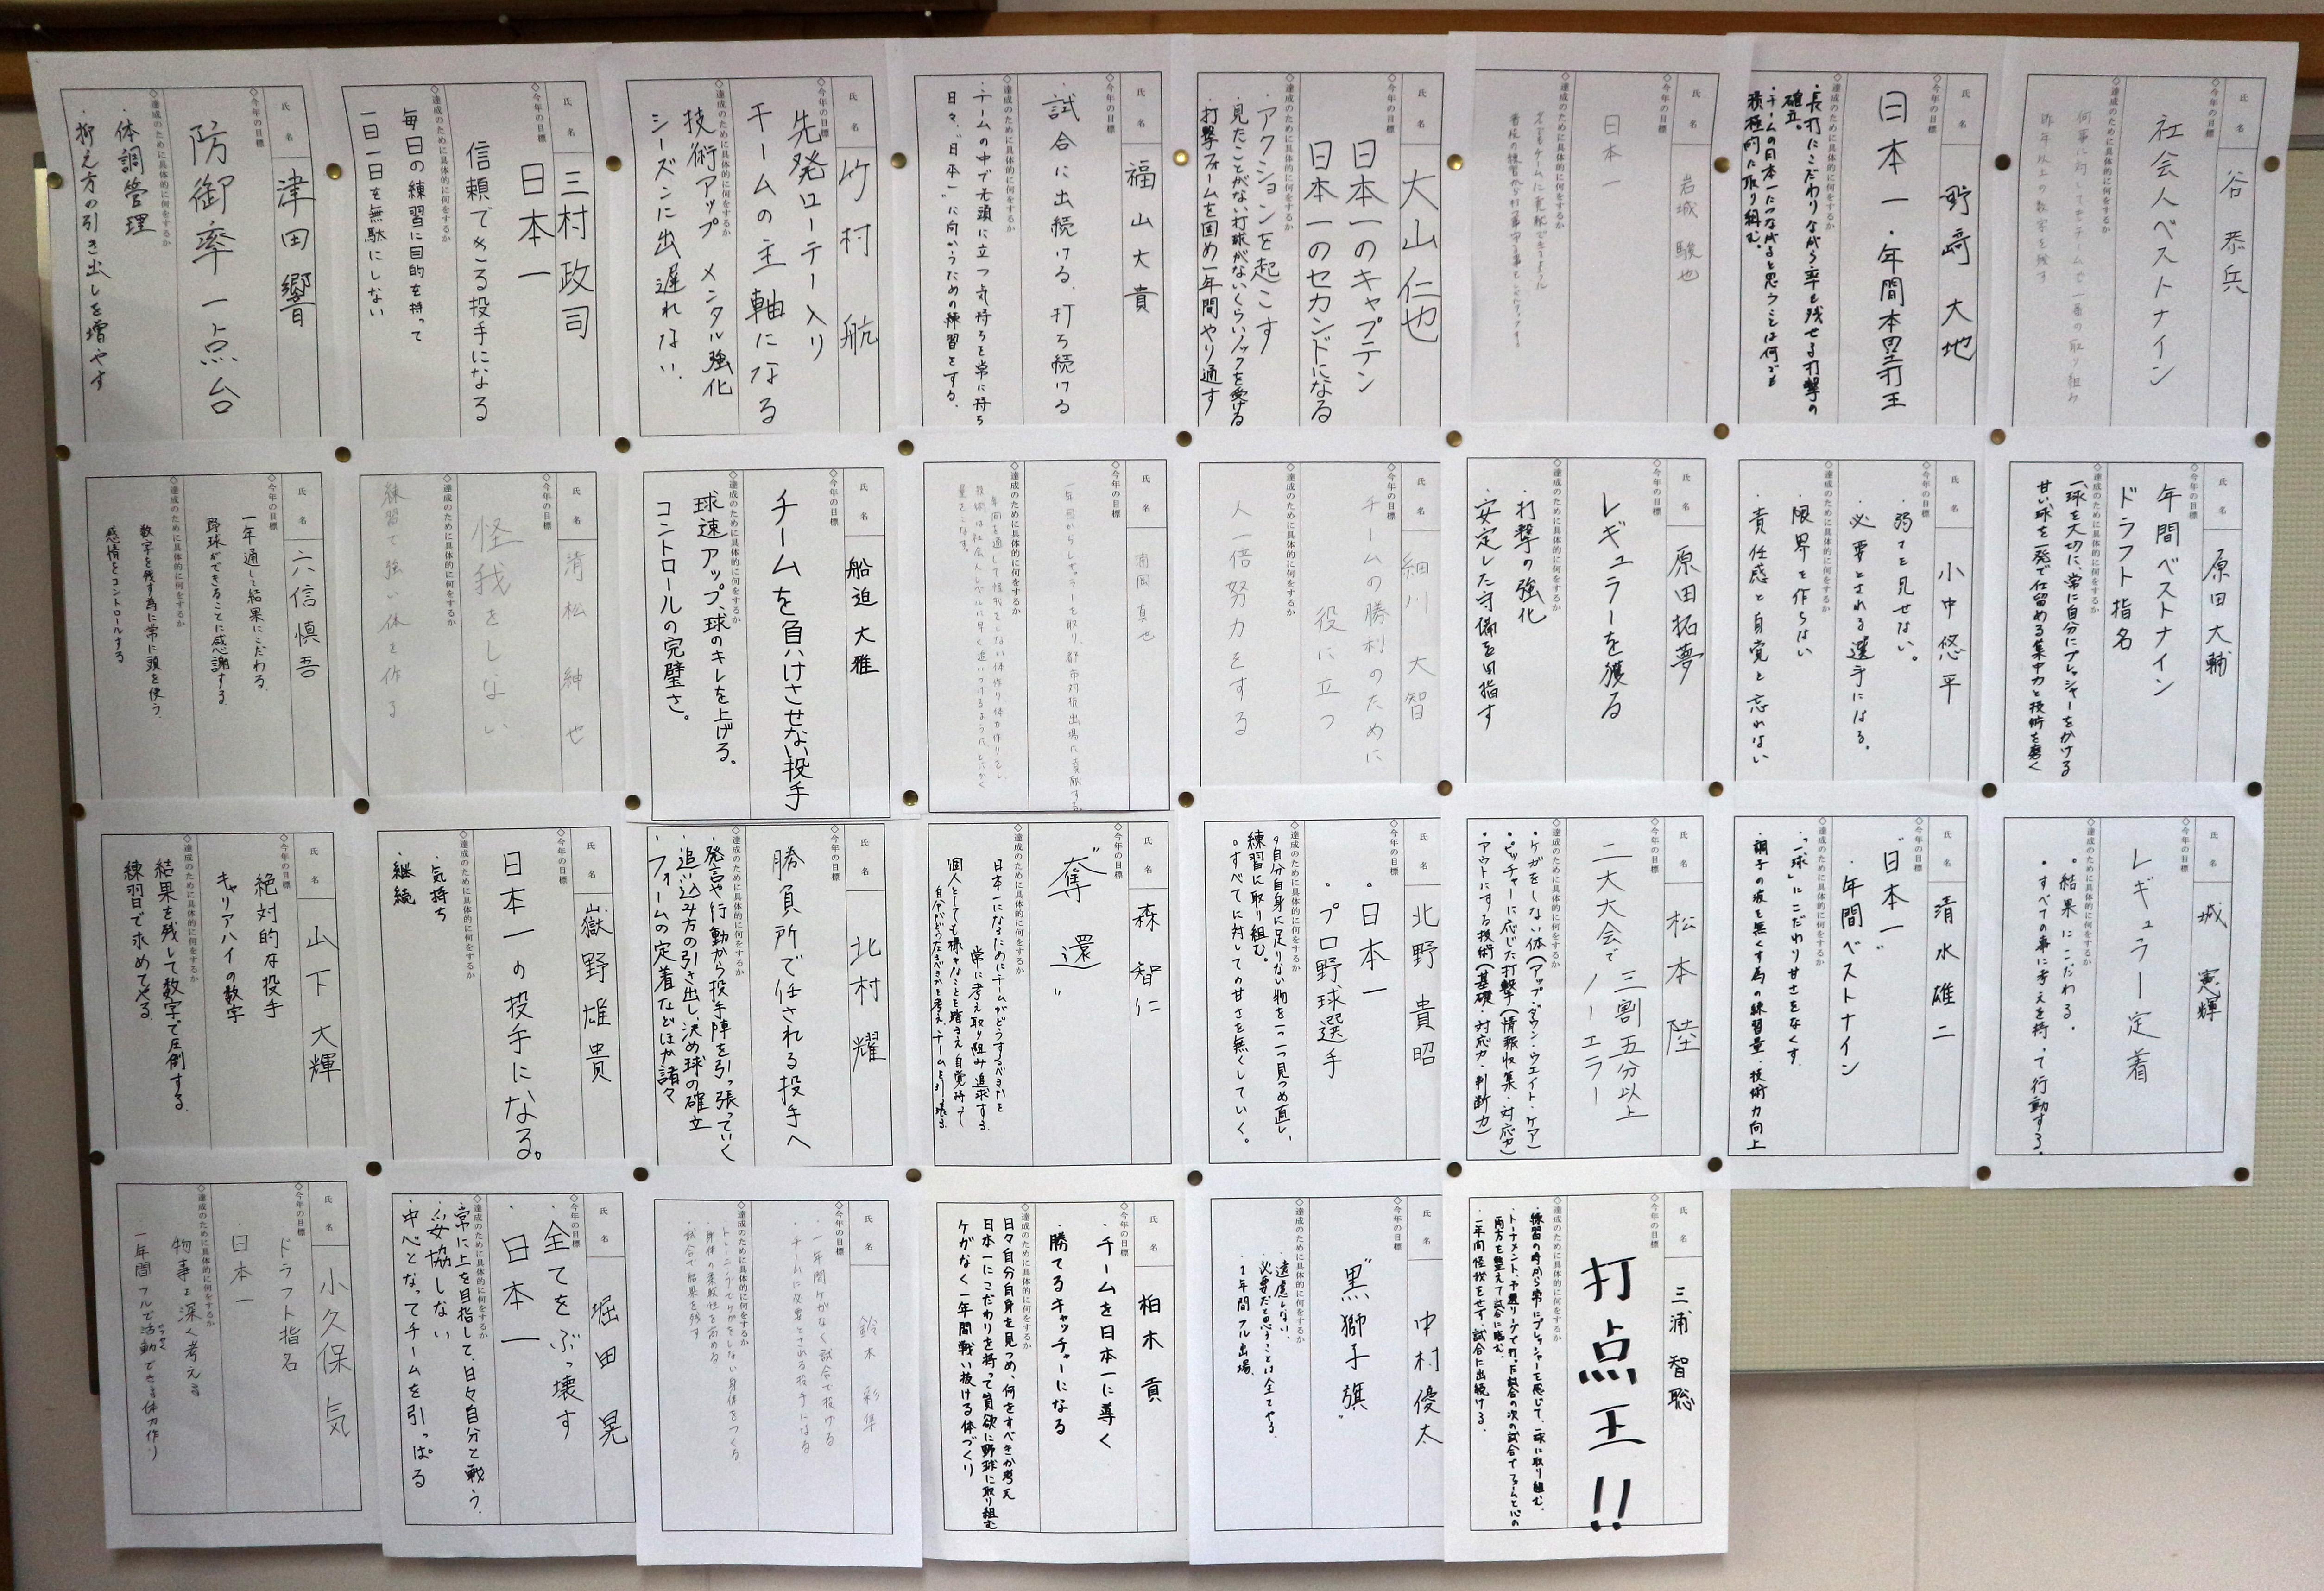 氏名 谷 恭兵
◇今年の目標
社会人ベストナイン
◇達成のために具体的に何をするか
何事に対してもチームで一番の取り組み
昨年以上の数字を残す
氏名 野﨑 大地
◇今年の目標
日本一・年間本塁打王
◇達成のために具体的に何をするか
・長打にこだわりながら率も残せる打撃の
確立。
・チームの日本一につながると思うことは何でも
積極的に取り組む。
氏名 岩城 駿也
◇今年の目標
日本一
◇達成のために具体的に何をするか
氏名 大山 仁也
◇今年の目標
日本一のキャプテン
日本一のセカンドになる
◇達成のために具体的に何をするか
・アクションを起こす
・見たことがない打球がないくらいノックを受ける
・打撃フォームを固め一年間やり通す
氏名 福山 大貴
◇今年の目標
試合に出続ける、打ち続ける
◇達成のために具体的に何をするか
・チームの中で先頭に立つ気持ちを常に持ち
日々、"日本一"に向かうための練習をする。
氏名 竹村 航
◇今年の目標
先発ローテー入り
チームの主軸になる
◇達成のために具体的に何をするか
技術アップ メンタル強化
シーズンに出遅れない.
氏名 三村 政司
◇今年の目標
日本一
信頼できる投手になる
◇達成のために具体的に何をするか
毎日の練習に目的を持って
一日一日を無駄にしない
氏名 津田 響
◇今年の目標
防御率一点台
◇達成のために具体的に何をするか
・体調管理
・抑え方の引き出しを増やす
氏名 原田 大輔
◇今年の目標
年間ベストナイン
ドラフト指名
◇達成のために具体的に何をするか
一球を大切に、常に自分にプレッシャーをかける
甘い球を一発で仕留める集中力と技術を磨く
氏名 小中 悠平
◇今年の目標
・弱さを見せない。
・必要とされる選手になる。
◇達成のために具体的に何をするか
・限界を作らない
・責任感と自覚を忘れない
氏名 原田 拓夢
◇今年の目標
レギュラーを獲る
◇達成のために具体的に何をするか
・打撃の強化
・安定した守備を目指す
氏名 細川 大智
◇今年の目標
チームの勝利のために
役に立つ
◇達成のために具体的に何をするか
人一倍努力をする
氏名 浦岡 真也
◇今年の目標
一年目からレギュラーを取り、都市対抗出場に貢献する。
◇達成のために具体的に何をするか
年間を通して怪我をしない体作り、体力作りをし
技術は社会人レベルに早く追いつけるようにとにかく
量をこなす。
氏名 船迫 大雅
◇今年の目標
チームを負けさせない投手
◇達成のために具体的に何をするか
球速アップ、球のキレを上げる。
コントロールの完璧さ。
氏名 清松 紳也
◇今年の目標
怪我をしない
◇達成のために具体的に何をするか
練習で強い体を作る
氏名 六信 慎吾
◇今年の目標
一年通して結果にこだわる
野球ができることに感謝する
◇達成のために具体的に何をするか
数字を残す為に常に頭を使う
感情をコントロールする
氏名 城 憲輝
◇今年の目標
レギュラー定着
◇達成のために具体的に何をするか
・結果にこだわる。
・すべての事に考えを持って行動する。
氏名 清水 雄二
◇今年の目標
"日本一"
・年間ベストナイン
◇達成のために具体的に何をするか
・「一球」にこだわり甘さをなくす
・調子の波を無くす為の練習量・技術力向上
氏名 松本 陸
◇今年の目標
二大大会で三割五分以上
ノーエラー
◇達成のために具体的に何をするか
・ケガをしない体(アップ・ダウン・ウエイト・ケア)
・ピッチャーに応じた打撃(情報収集・対応力)
・アウトにする技術(基礎・対応力・判断力)
氏名 北野 貴昭
◇今年の目標
・日本一
・プロ野球選手
◇達成のために具体的に何をするか
・自分自身に足りない物を一つ一つ見つめ直し、
練習に取り組む。
・すべてに対しての甘さを無くしていく。
氏名 森 智仁
◇今年の目標
"奪還"
◇達成のために具体的に何をするか
日本一になるためにチームがどうするべきかを
常に考え取り組み追求する。
個人としても様々なことを踏まえ自覚持って
自分がどう在るべきかを考え、チームを引っ張る。
氏名 北村 耀
◇今年の目標
勝負所で任される投手へ
◇達成のために具体的に何をするか
・発言や行動から投手陣を引っ張っていく
・追い込み方の引き出し、決め球の確立
・フォームの定着などほか諸々
氏名 嶽野 雄貴
◇今年の目標
日本一の投手になる。
◇達成のために具体的に何をするか
・気持ち
・継続
氏名 山下 大輝
◇今年の目標
絶対的な投手
キャリアハイの数字
◇達成のために具体的に何をするか
結果を残して数字で圧倒する
練習で求めてやる
氏名 三浦 智聡
◇今年の目標
打点王!!
◇達成のために具体的に何をするか
・練習の時から常にプレッシャーを感じて、一球に取り組む。
・トーナメント、予選リーグで打った試合の次の試合でフォームと心の
両方を整えて試合に臨む。
・一年間怪我をせず、試合に出続ける。
氏名 中村 優太
◇今年の目標
"黒獅子旗"
◇達成のために具体的に何をするか
・遠慮しない。
・必要だと思うことは全てやる。
・1年間フル出場。
氏名 柏木 貢
◇今年の目標
・チームを日本一に導く
・勝てるキャッチャーになる
◇達成のために具体的に何をするか
日々自分自身を見つめ、何をすべきか考え
日本一にこだわりを持って貪欲に野球に取り組む
ケガなく一年間戦い抜ける体づくり
氏名 鈴木 彩隼
◇今年の目標
・一年間ケガなく試合で投げる
・チームに必要とされる投手になる
◇達成のために具体的に何をするか
・トレーニングでケガをしない身体をつくる
・身体の柔軟性を高める
・試合で結果を残す
氏名 堀田 晃
◇今年の目標
・全てをぶっ壊す
・日本一
◇達成のために具体的に何をするか
・常に上を目指して、日々自分と戦う
・妥協しない
・中心となってチームを引っぱる
氏名 小久保 気
◇今年の目標
・ドラフト指名
・日本一
◇達成のために具体的に何をするか
・物事を深く考える
・一年間フルで活動できる体力作り